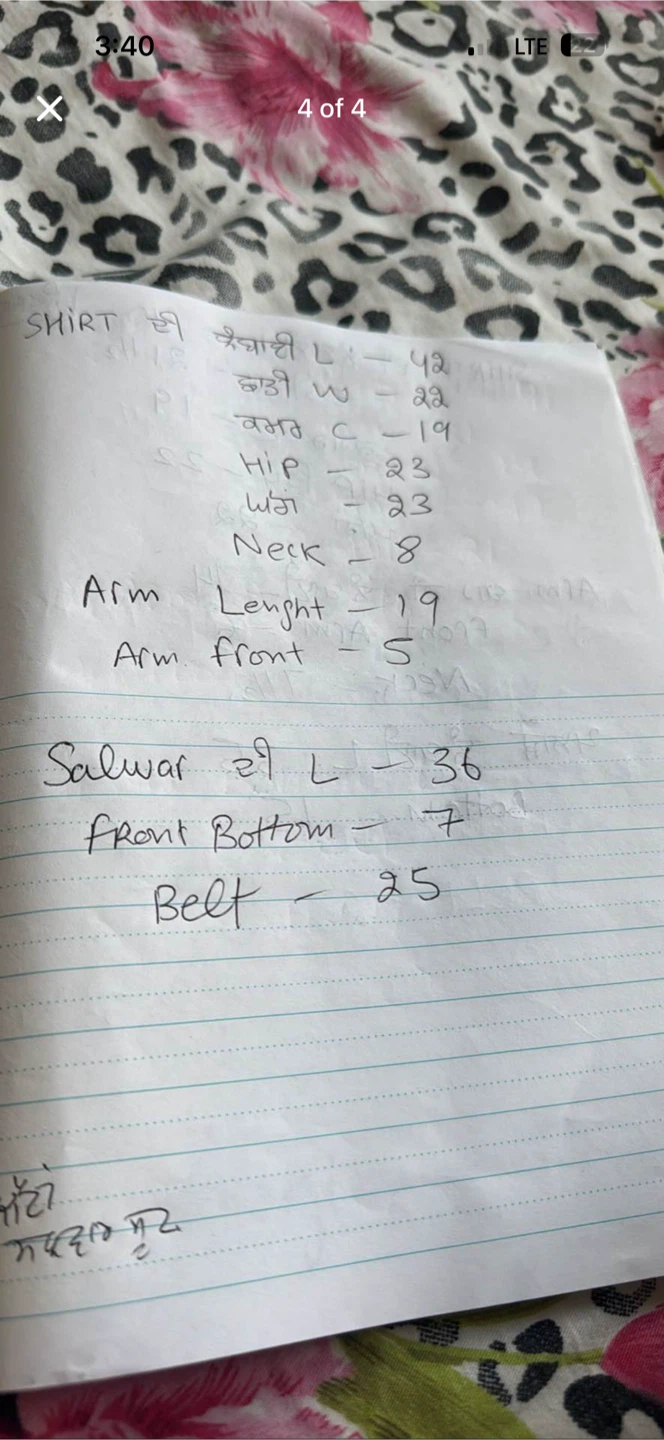 3:40 LTE 22
4 of 4
SHIRT ਦੀ ਲੰਬਾਈ L - 42
ਛਾਤੀ W - 22
ਕਮਰ C - 19
Hip - 23
ਘੇਰਾ - 23
Neck - 8
Arm Lenght - 19
Arm front - 5
Salwar ਦੀ L - 36
fRont Bottom - 7
Belt - 25
ਸੂਟ